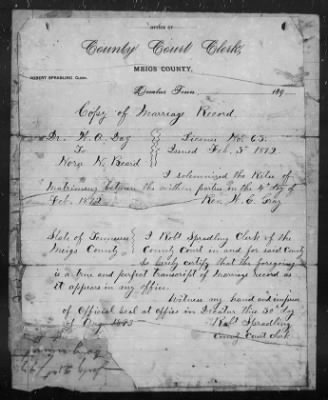 OFFICE OF
County Court Clerk,
MEIGS COUNTY,
ROBERT SPRADLING, Clerk.
Decatur Tenn. 189
Copy of Marriage Record.
Dr. W. A. Day } License No. 63.
To } Issued Feb. 3rd 1872
Nora N. Beard
I solemnized the Rites of
Matrimony between the within parties in the 4th day of
Feb. 1872 Rev. W. C. Day
State of Tennessee } I Robt Spradling Clerk of the
Meigs County } County Court in and for said County
do hereby certify that the foregoing
is a true and perfect transcript of Marriage record as
it appears in my office.
Witness my hand and impress
of Official Seal at office in Decatur this 30th day
of Aug 1893
Robt Spradling
County Court Clerk